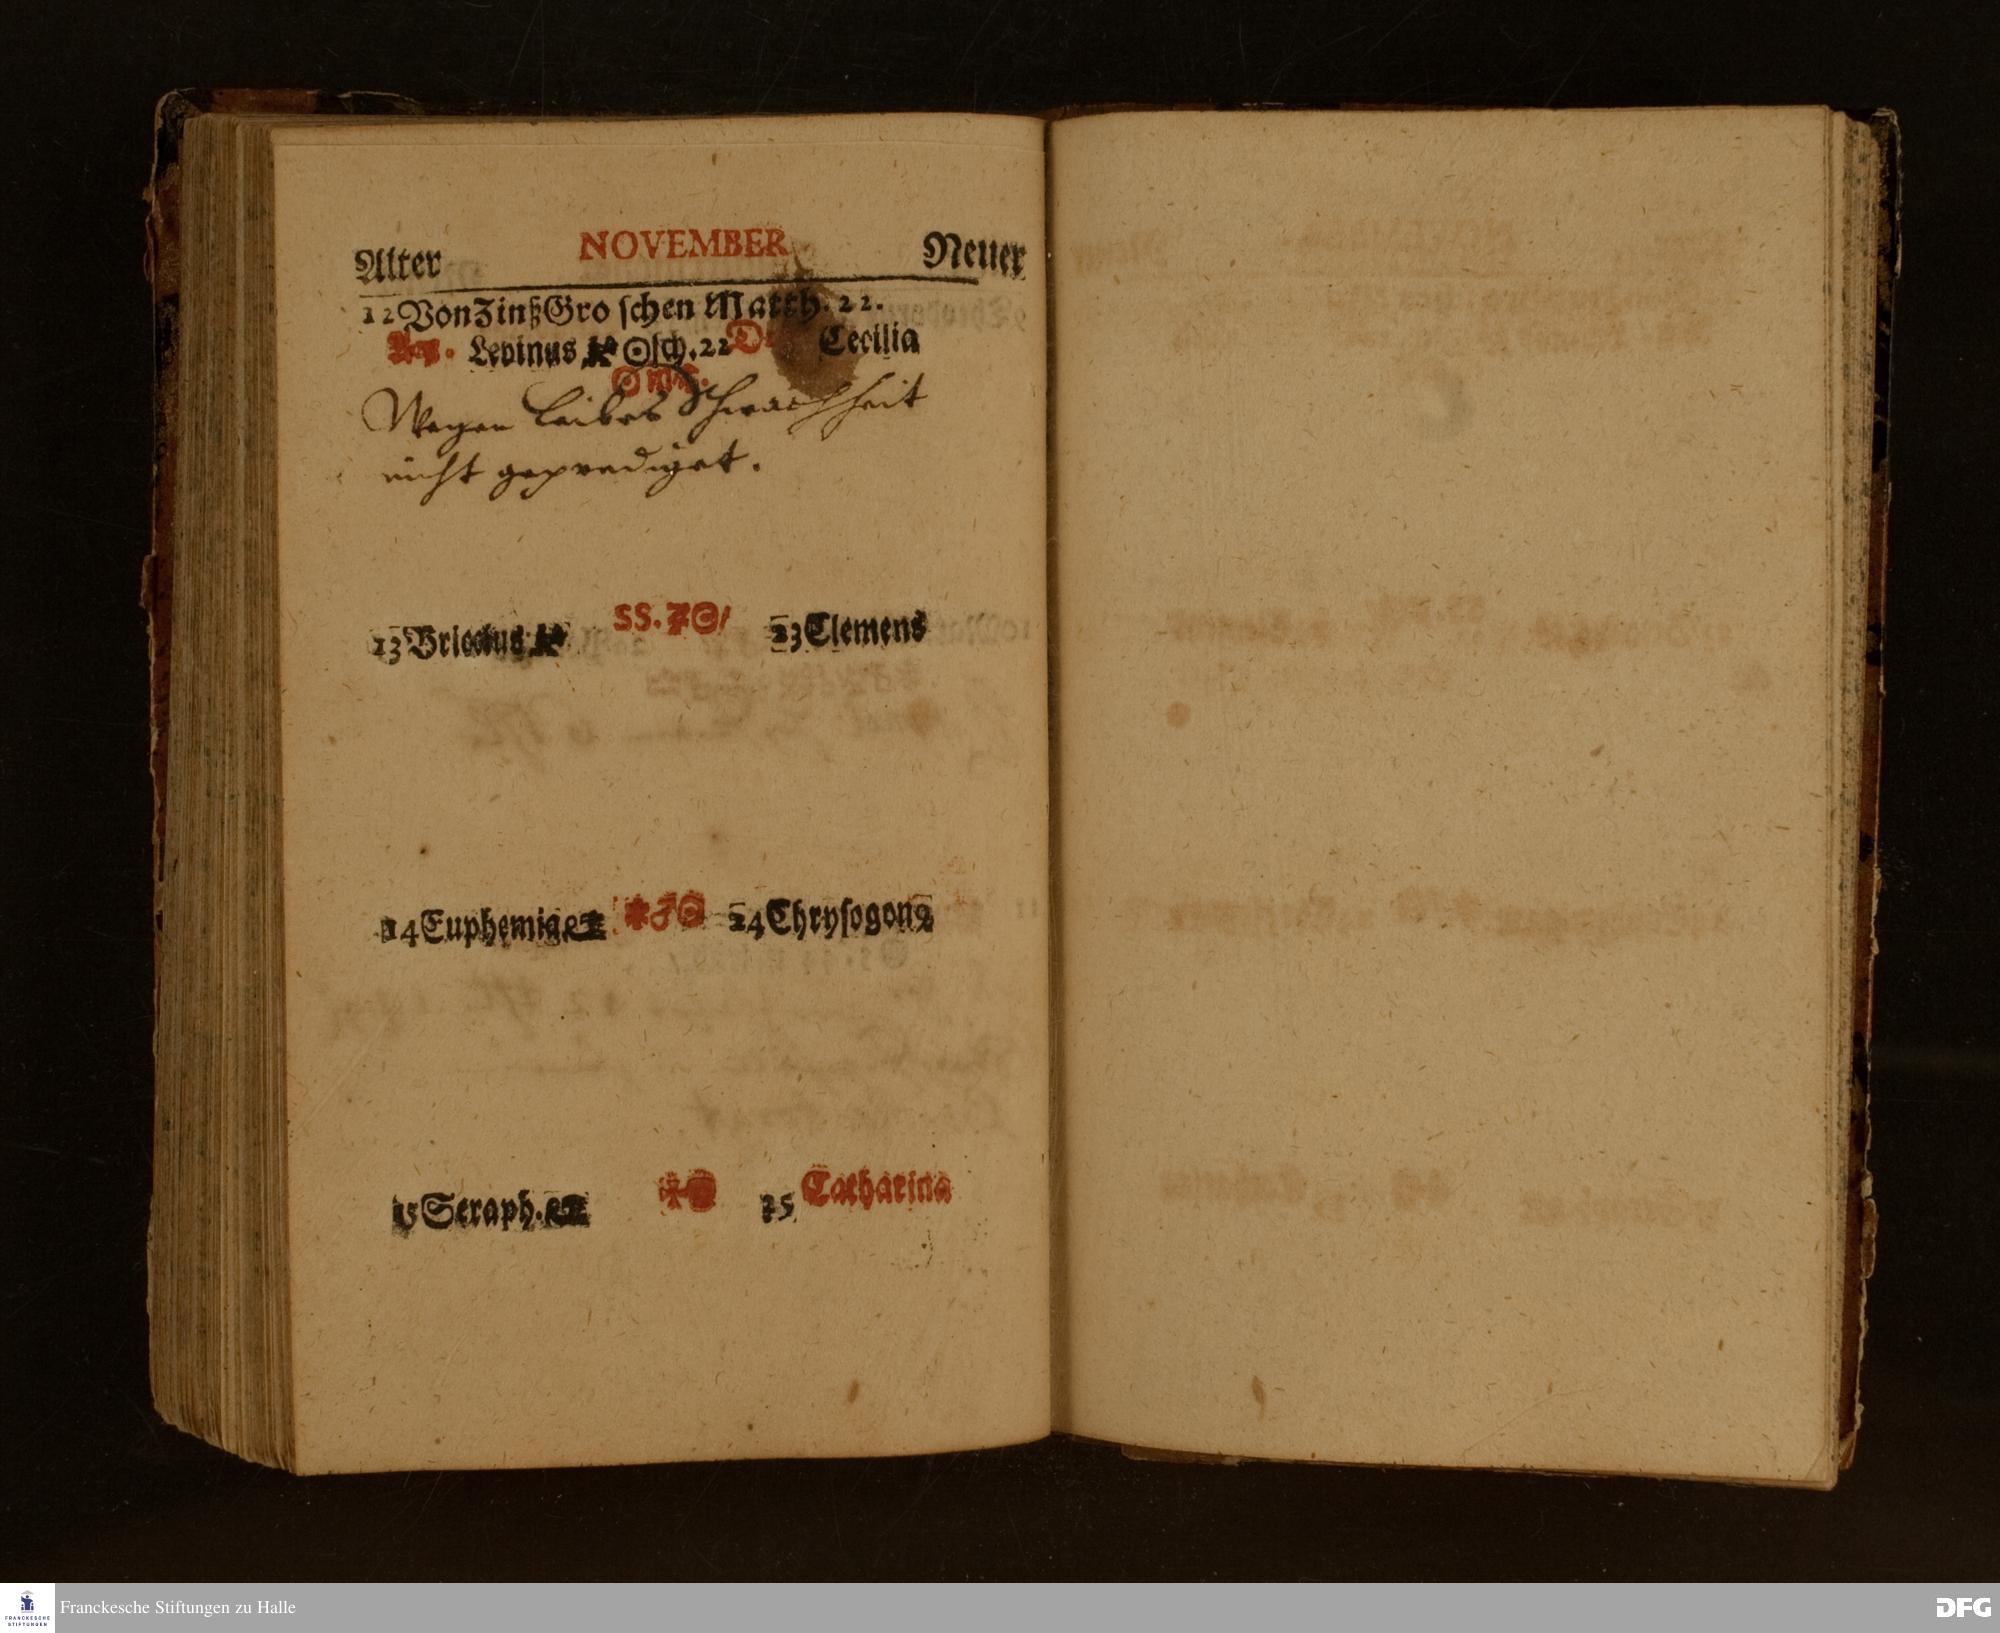 Alter NOVEMBER Neuer
12 Von Zinß Groschen Matth. 22.
Levinus ☉ sch. 22 Cecilia
Wegen Leibes Schwachheit
nicht geprediget.
13 Briccius SS. 23 Clemens
14 Euphemia ⚹♂☉ 24 Chrysogon9
15 Seraph. 25 Catharina
Franckesche Stiftungen zu Halle
FRANCKESCHE
STIFTUNGEN
DFG